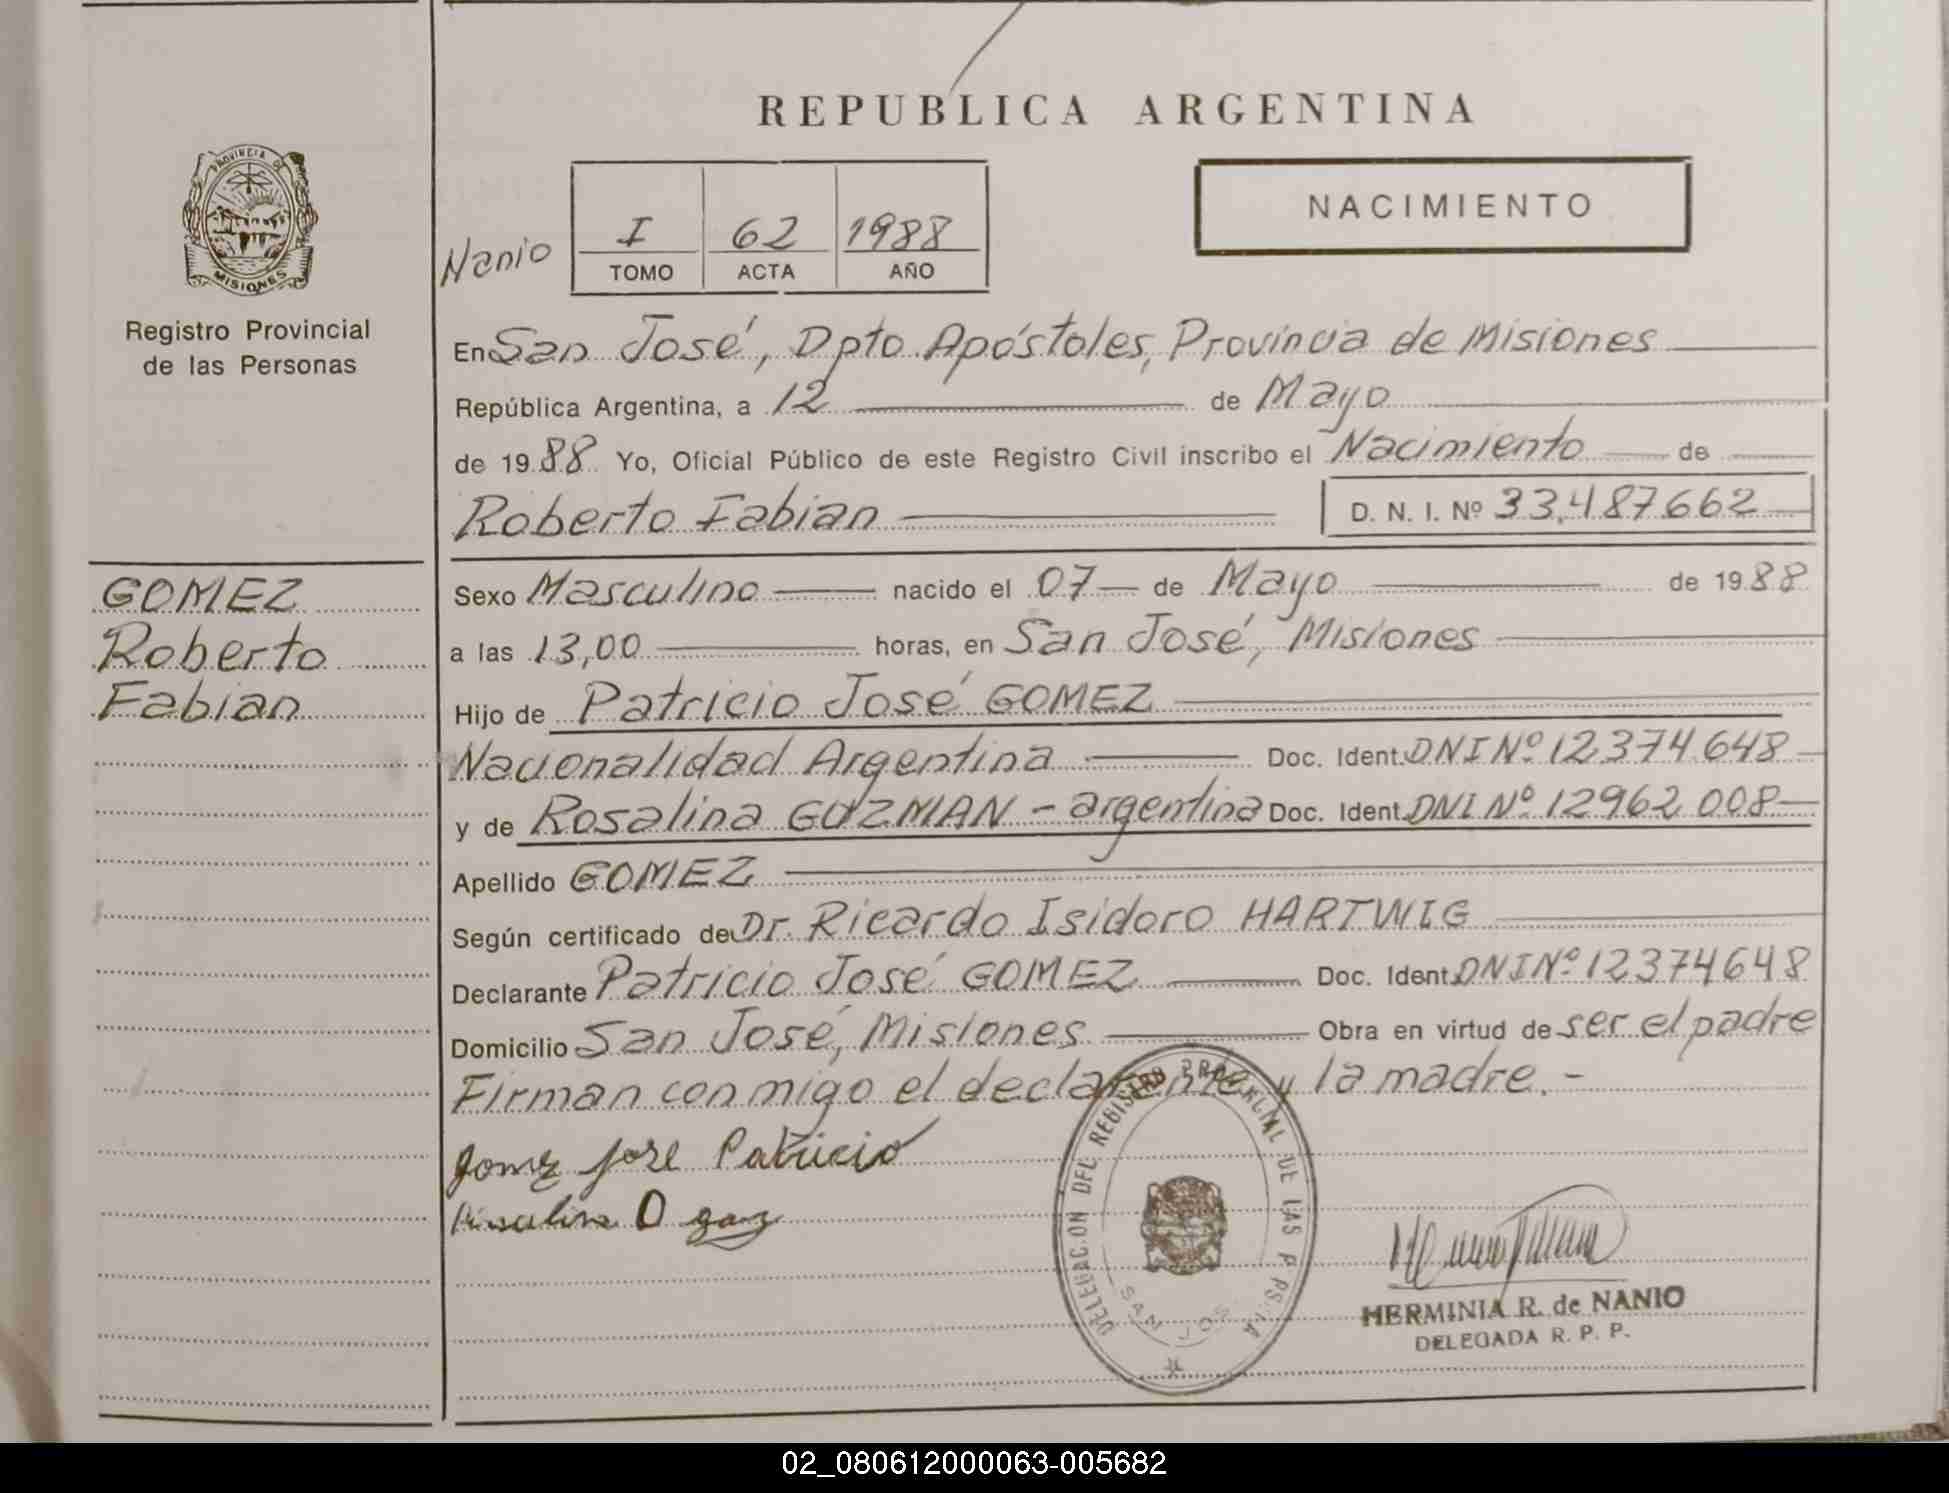 REPUBLICA ARGENTINA
PROVINCIA DE
MISIONES
Registro Provincial
de las Personas
Nanio
I 62 1988
TOMO ACTA AÑO
NACIMIENTO
En San José, Dpto Apóstoles, Provincia de Misiones
República Argentina, a 12 de Mayo
de 1988 Yo, Oficial Público de este Registro Civil inscribo el Nacimiento de
Roberto Fabian D. N. I. Nº 33.487.662
GOMEZ
Roberto
Fabian
Sexo Masculino nacido el 07 de Mayo de 1988
a las 13,00 horas, en San José, Misiones
Hijo de Patricio José GOMEZ
Nacionalidad Argentina Doc. Ident. DNI Nº 12374.648
y de Rosalina GUZMAN - argentina Doc. Ident. DNI Nº 12962.008
Apellido GOMEZ
Según certificado de Dr. Ricardo Isidoro HARTWIG
Declarante Patricio José GOMEZ Doc. Ident. DNI Nº 12374648
Domicilio San José, Misiones Obra en virtud de ser el padre
Firman conmigo el declarante y la madre.-
Gomez Jose Patricio
DELEGACION DEL REGISTRO PROVINCIAL DE LAS
SAN JOSE
HERMINIA R. de NANIO
DELEGADA R. P. P.
02_080612000063-005682